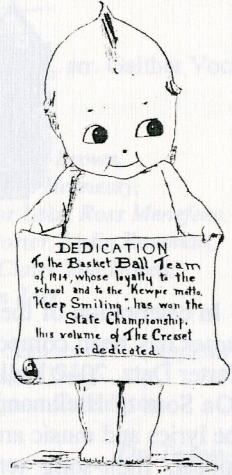 DEDICATION
To the Basket Ball Team
of 1914, whose loyalty to the
school and to the "Kewpie motto,
"Keep Smiling", has won the
State Championship,
this volume of The Cresset
is dedicated.